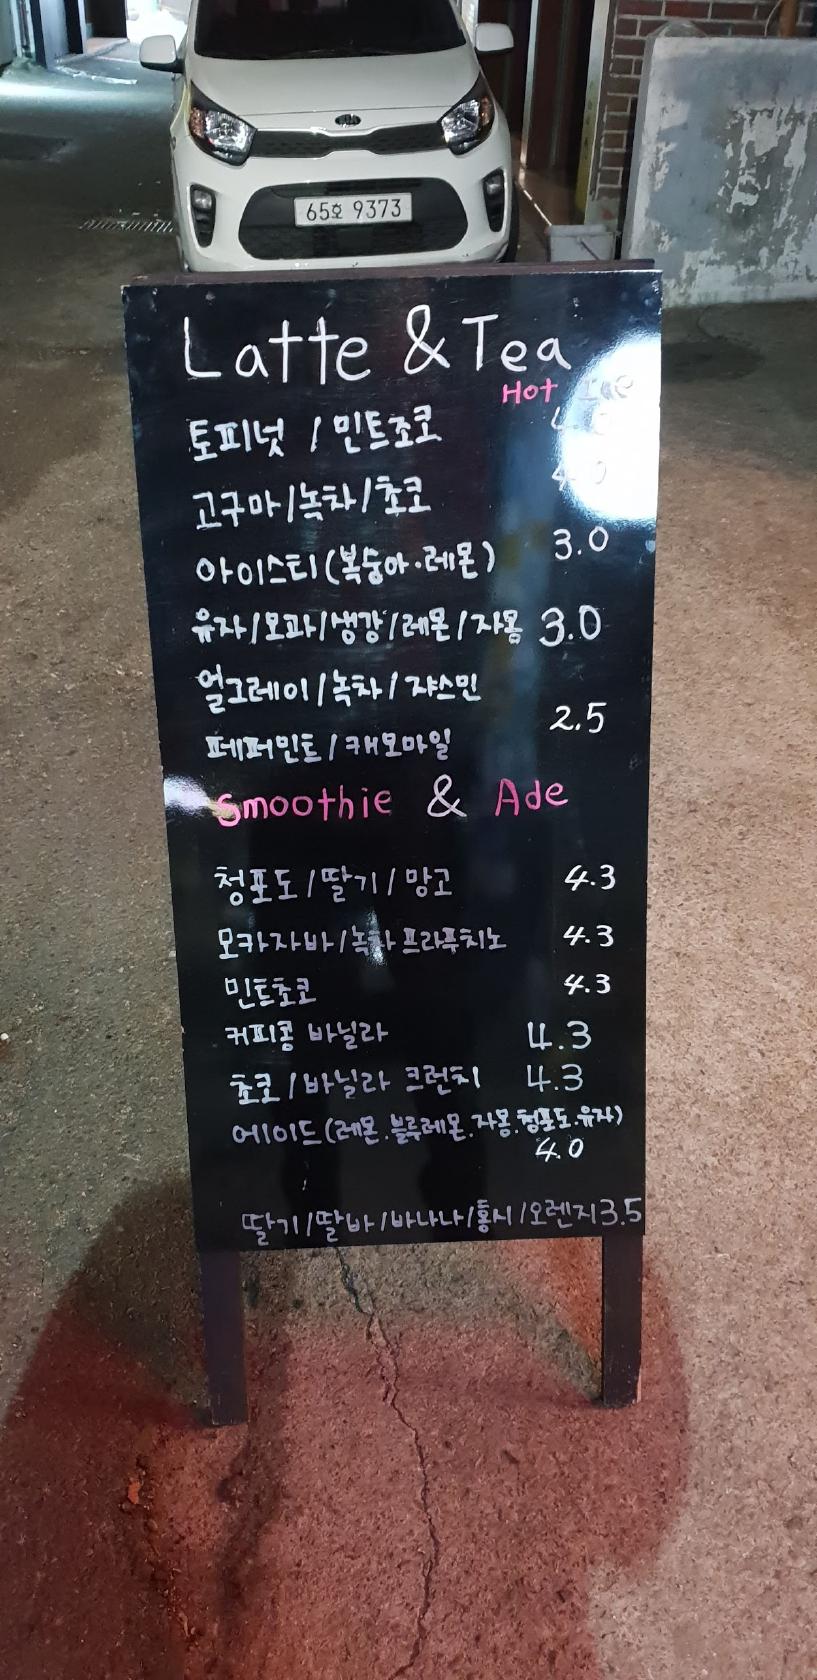 KIA
65호 9373
Latte & Tea
Hot Ice
토피넛 / 민트초코
고구마/녹차/초코 4.0
아이스티(복숭아·레몬) 3.0
유자/모과/생강/레몬/자몽 3.0
얼그레이/녹차/쟈스민
페퍼민트/캐모마일 2.5
Smoothie & Ade
청포도/딸기/망고 4.3
모카자바/녹차프라푸치노 4.3
민트초코 4.3
커피콩 바닐라 4.3
초코/바닐라 크런치 4.3
에이드(레몬.블루레몬.자몽.청포도.유자)
4.0
딸기/딸바/바나나/홍시/오렌지 3.5